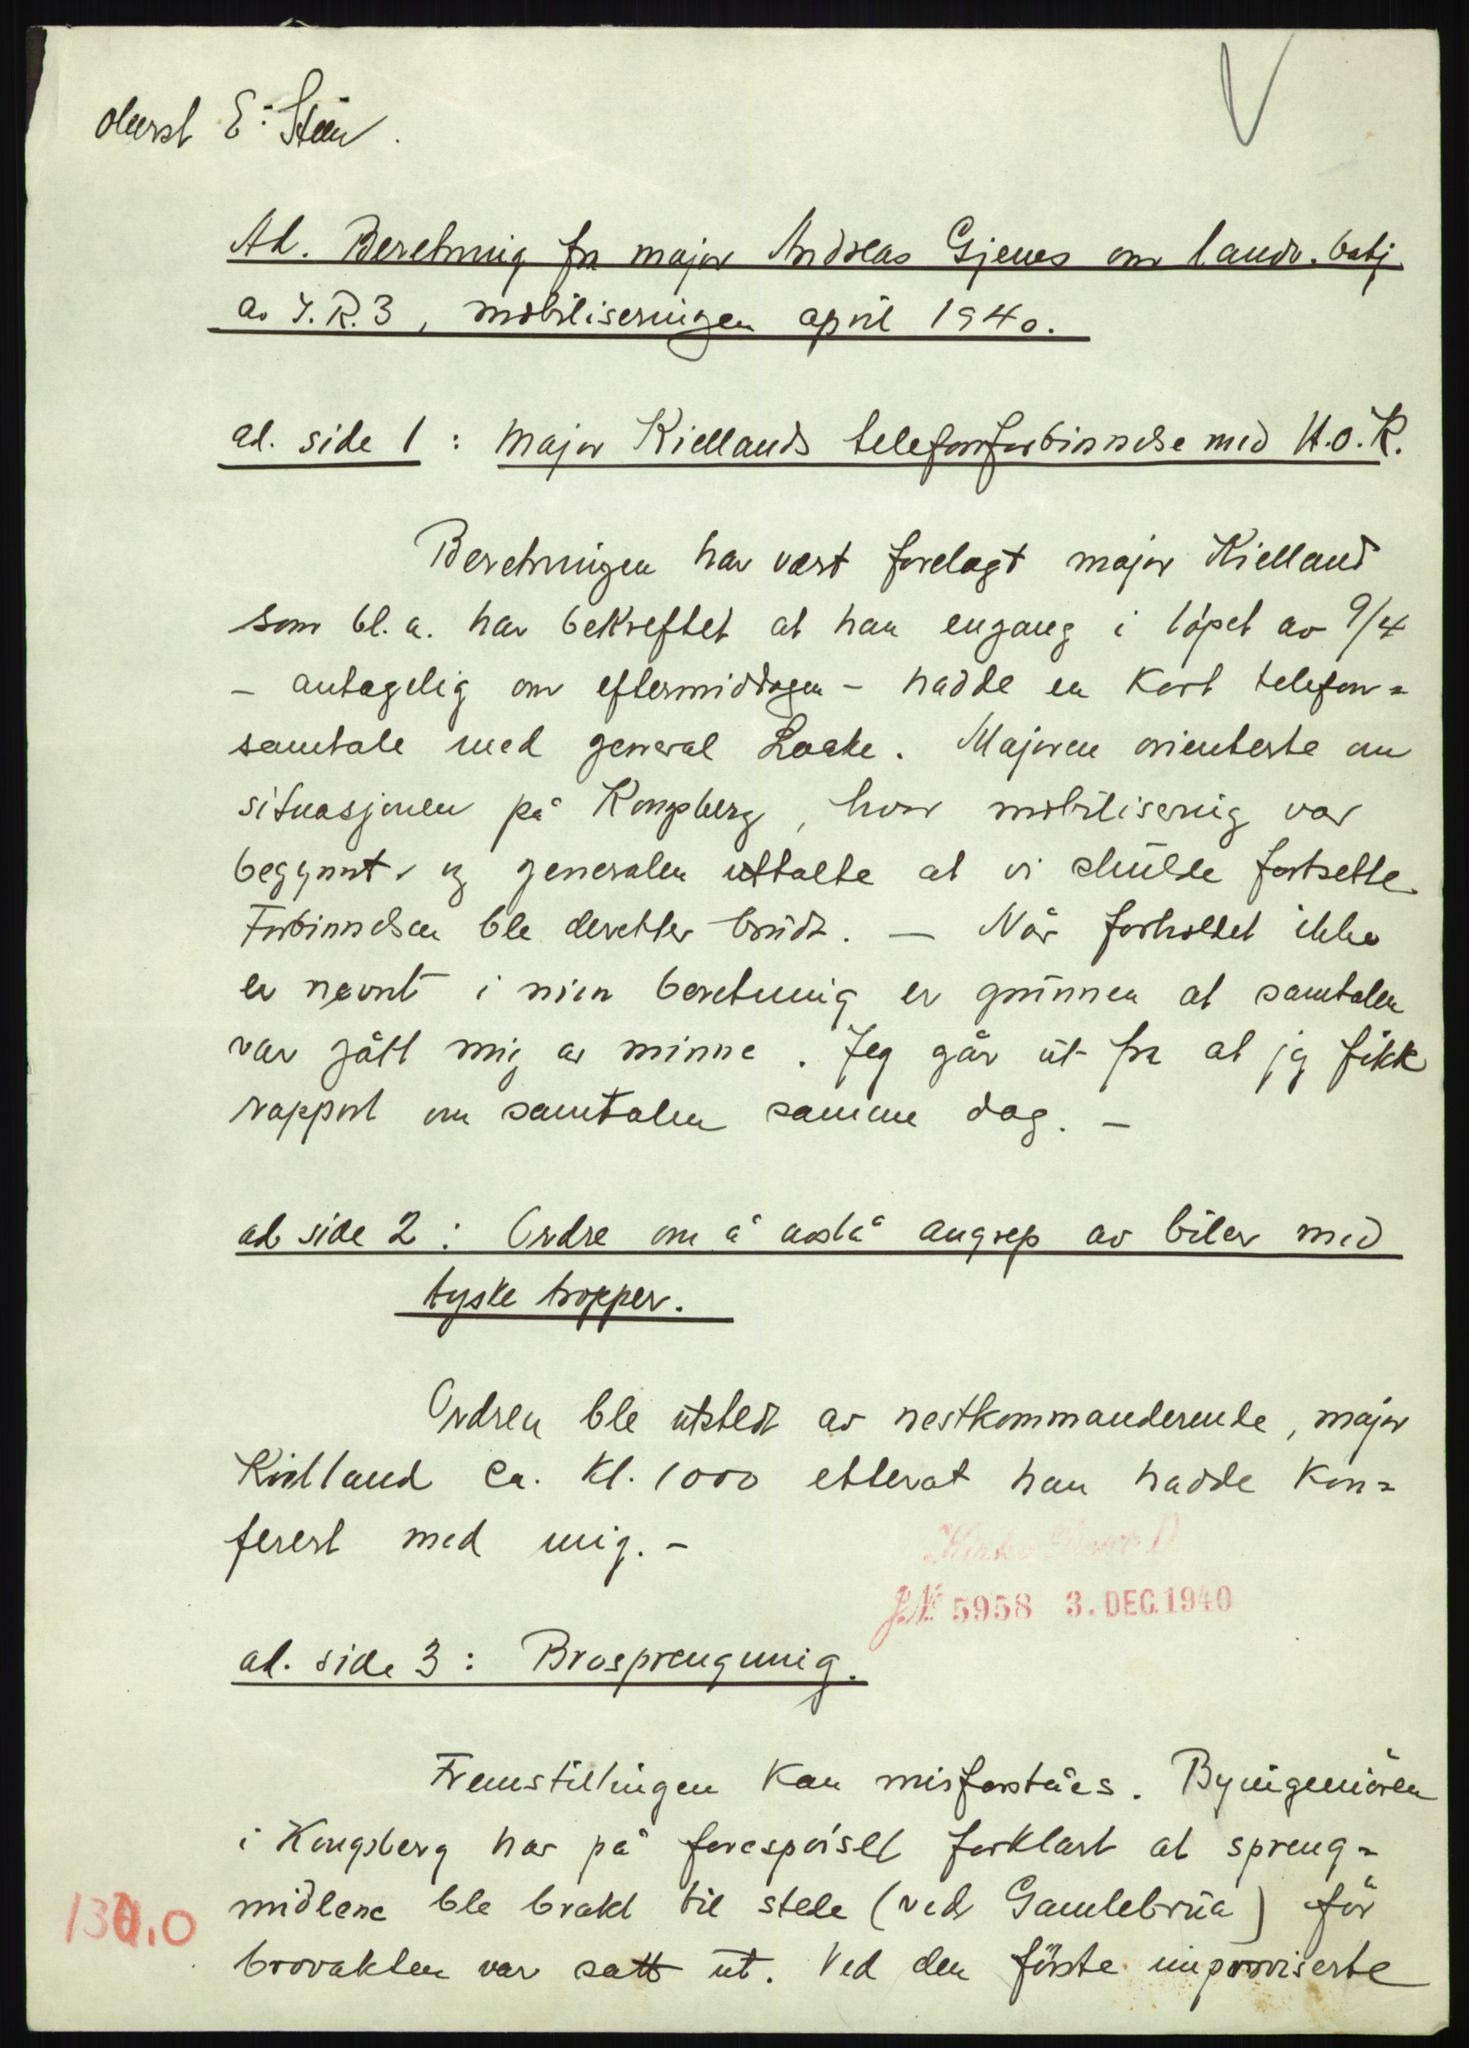 oberst E. Steen.
Ad. Beretning fra major Andreas Gjenes om landv. batj
av I.R.3, mobiliseringen april 1940.
ad. side 1 : Major Kiellands telefonforbinnelse med H.O.K.
Beretningen har vært forelagt major Kielland
som bl.a. har bekreftet at han engang i löpet av 9/4
– antagelig om eftermiddagen – hadde en kort telefon=
samtale med general Laake. Majoren orienterte om
situasjonen på Kongsberg, hvor mobilisering var
begynnt, og generalen uttalte at vi skulde fortsette.
Forbinnelsen ble deretter brudt. — Når forholdet ikke
er nevnt i min beretning er grunnen at samtalen
var gått mig av minne. Jeg går ut fra at jeg fikk
rapport om samtalen samme dag. –
ad side 2 : Ordre om å avslå angrep av biler med
tyske tropper.
Ordren ble utstedt av nestkommanderende, major
Kielland ca. kl. 1000 etterat han hadde kon=
ferert med mig. –
J№ 5958 3. DEC. 1940
ad. side 3 : Brosprengning.
Fremstillingen kan misforståes. Byingeniören
i Kongsberg har på forespörsel forklart at spreng=
midlene ble brakt til stede (ved Gamlebrua) för
brovakten var satt ut. Ved den förste improviserte
130.0